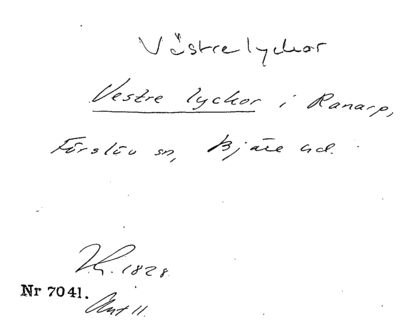 Västre lyckor
Vestre lyckor i Ranarp,
Förslöv sn, Bjäre hd.
1828.
Nr 7041.
Akt 11.